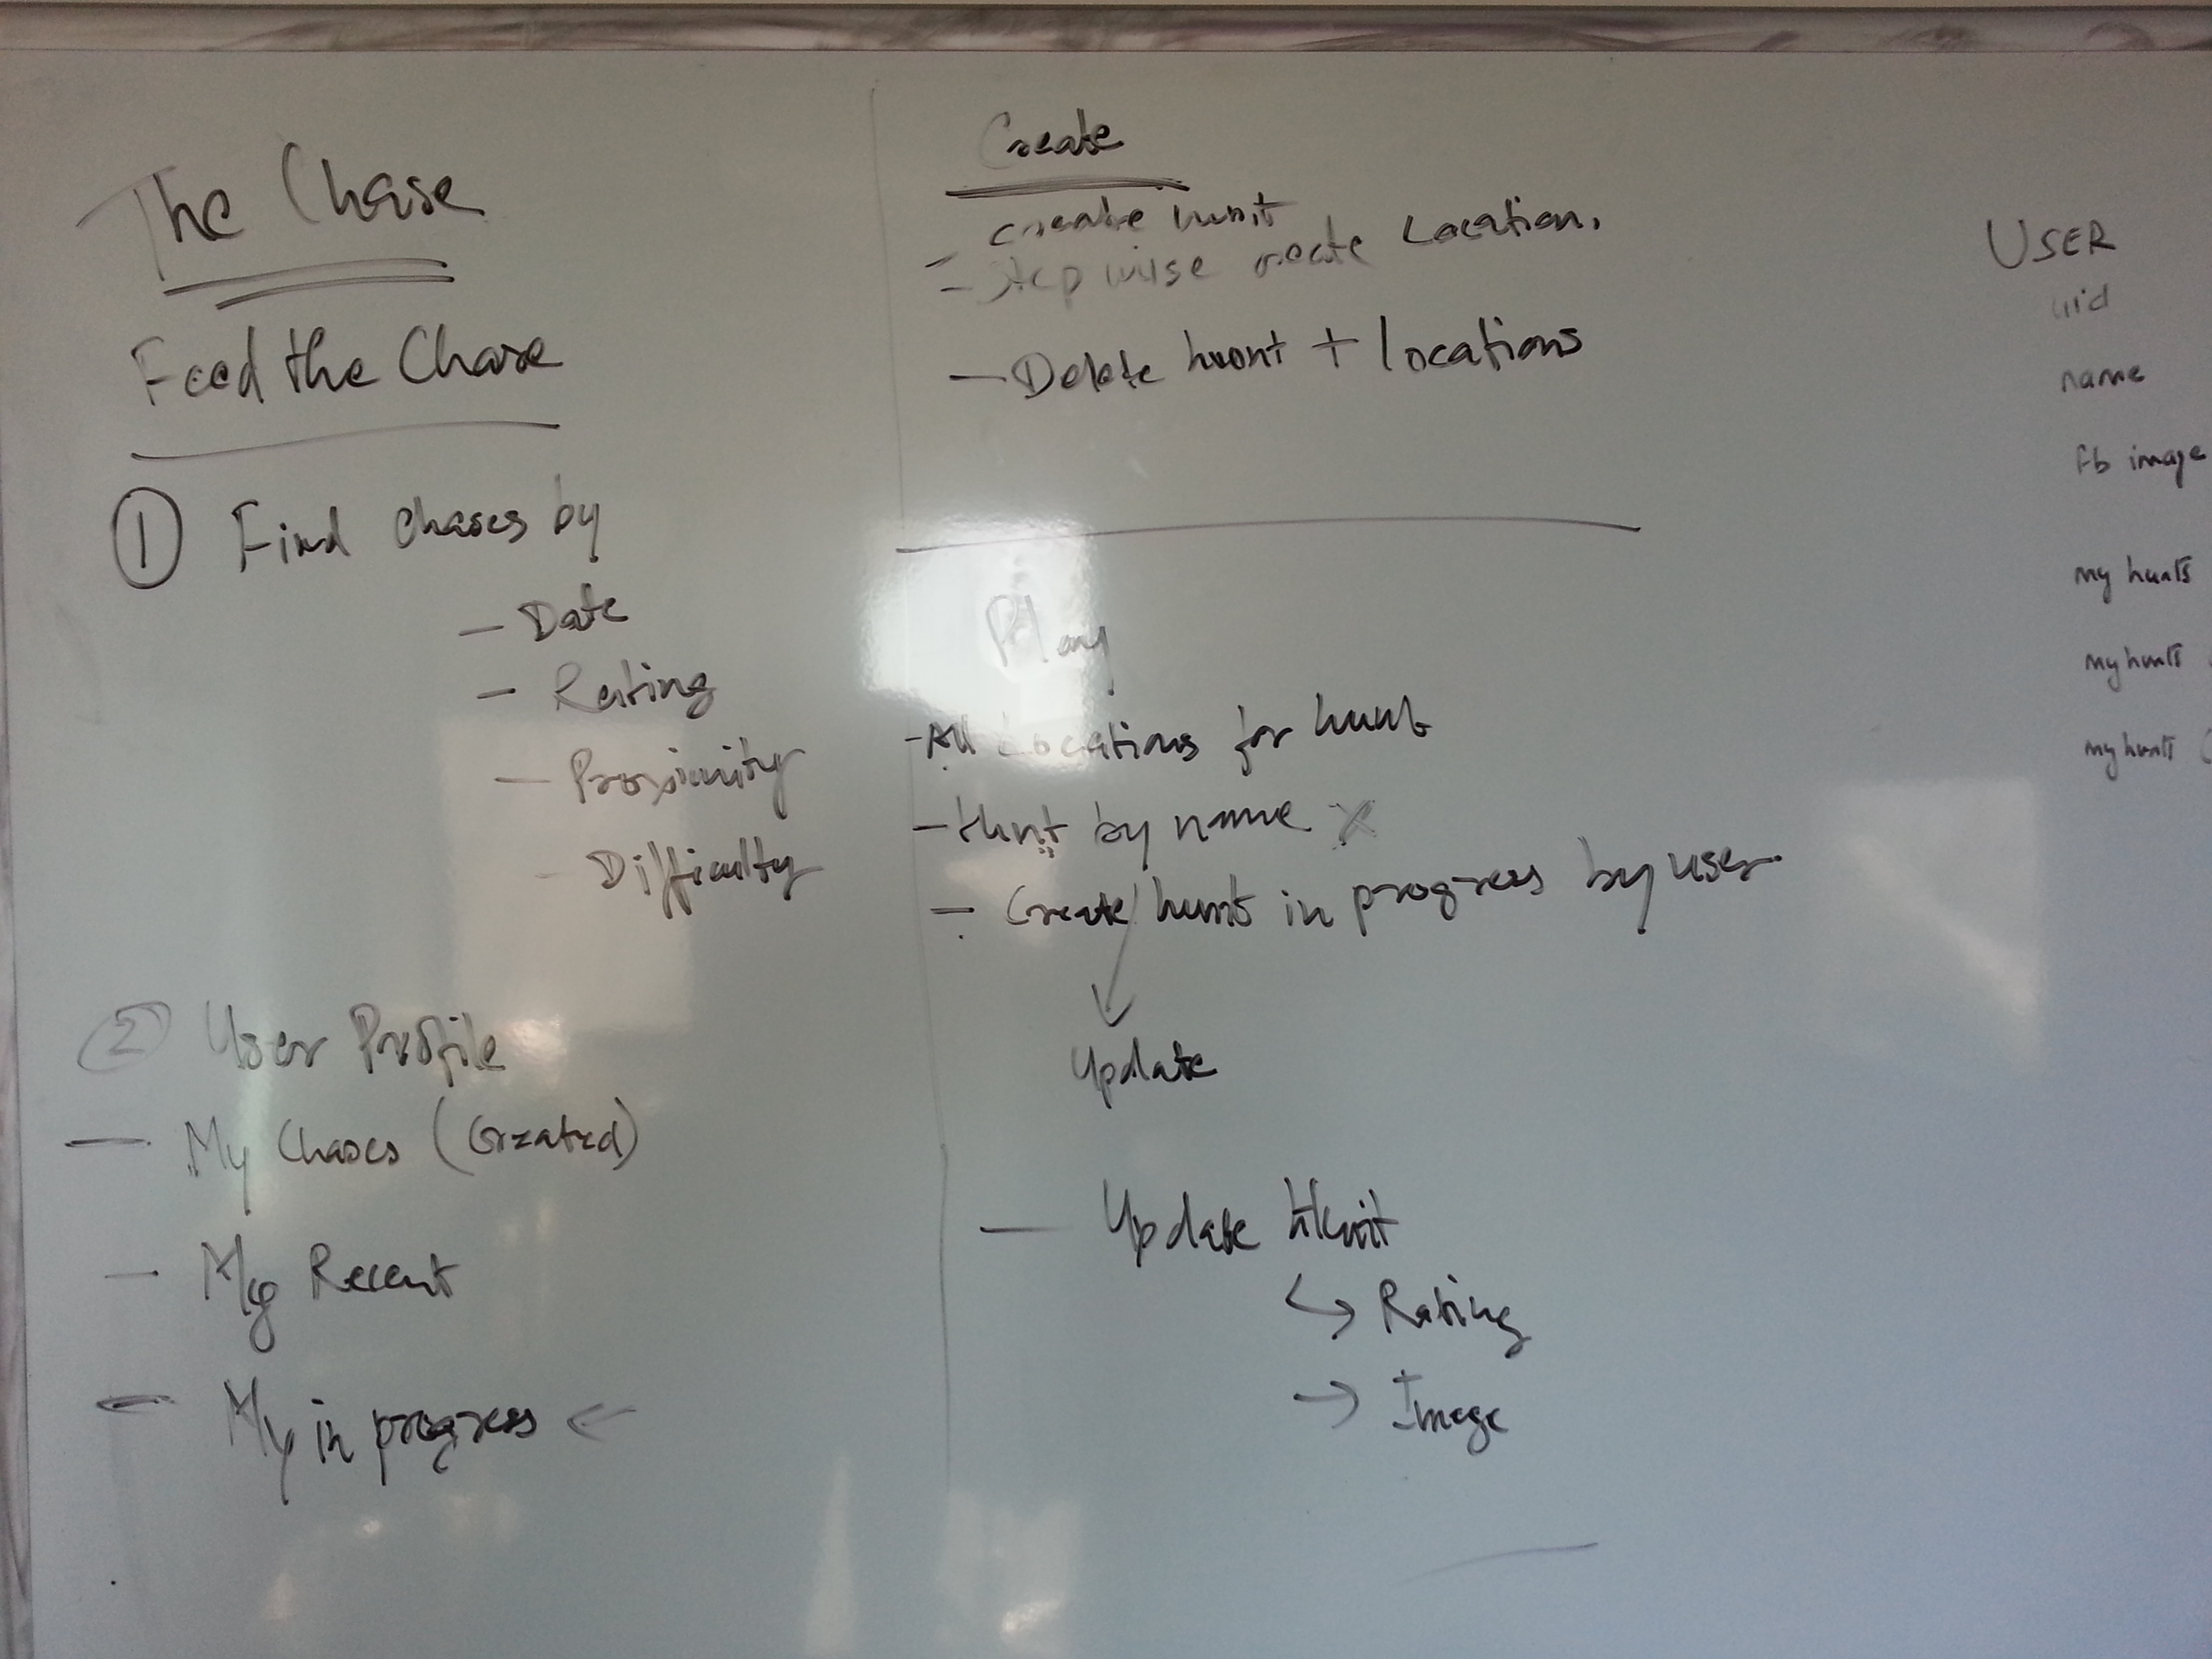 The Chase
Feed the Chase
① Find chases by
— Date
— Rating
— Proximity
— Difficulty
② User Profile
— My Chases (Created)
— My Recent
— My in progress ←
Create
- create hunt
- Stepwise create Location.
— Delete hunt + locations
Play
- All Locations for hunt
- Hunt by name X
- Create hunt in progress by user
Update
— Update Hunt
↳ Rating
→ Image
USER
uid
name
fb image
my hunts
my hunts
my hunts (